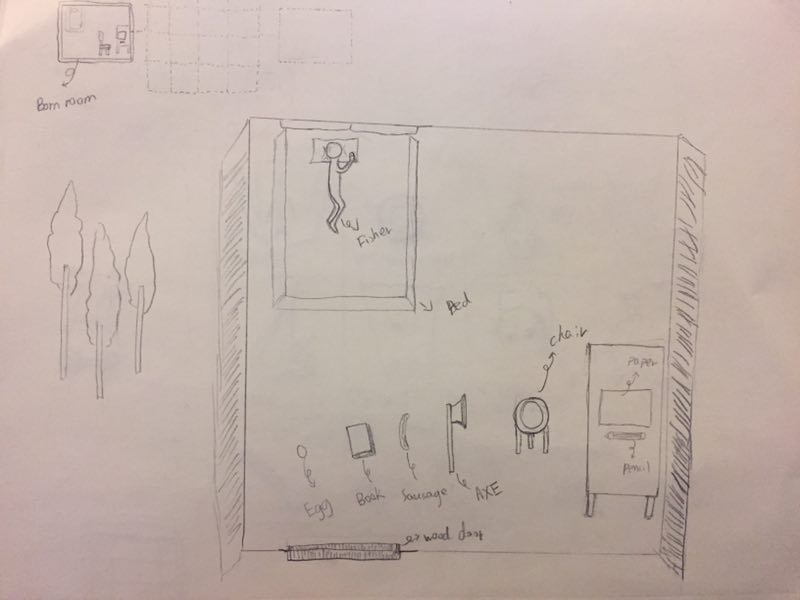 Born room
Fisher
Bed
chair
paper
pencil
Egg
Book
Sausage
AXE
wood door